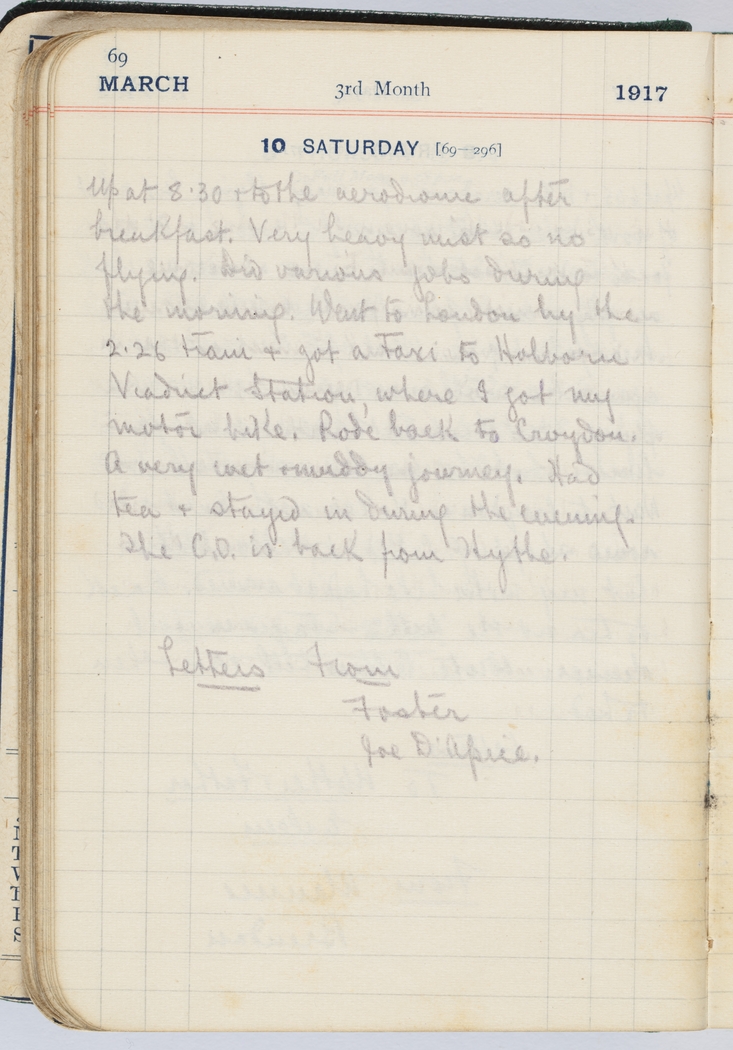 69
MARCH 3rd Month 1917
10 SATURDAY [69—296]
Up at 8.30 & to the aerodrome after
breakfast. Very heavy mist so no
flying. Did various jobs during
the morning. Went to London by the
2.26 train & got a Taxi to Holborn
Viaduct Station, where I got my
motor bike. Rode back to Croydon.
A very wet & muddy journey. Had
tea & stayed in during the evening.
The C.O. is back from Hythe.
Letters From
Foster
Joe D'Apice.